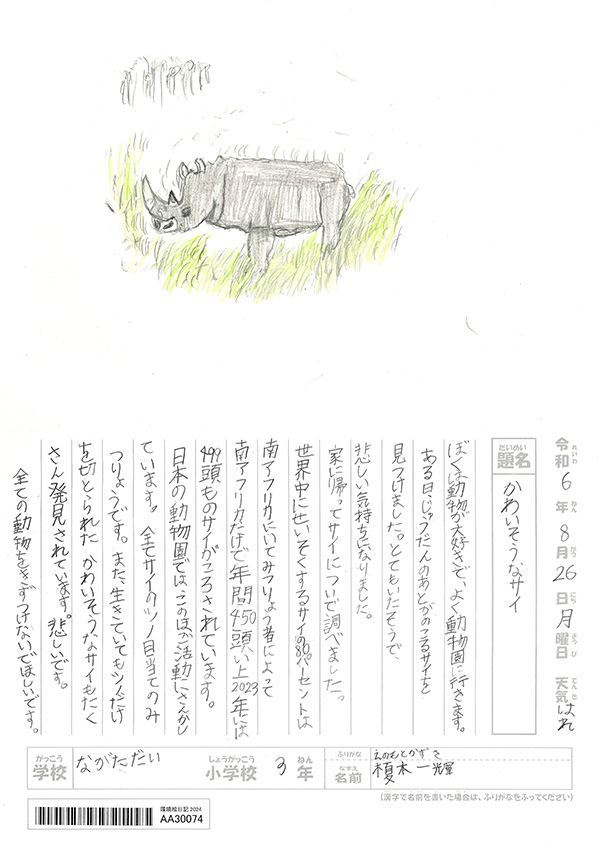 令和6年8月26日月曜日 天気はれ
題名 かわいそうなサイ
ぼくは動物が大好きで、よく動物園に行きます。
ある日、じゅうだんのあとがのこるサイを
見つけました。とてもいたそうで、
悲しい気持ちになりました。
家に帰ってサイについて調べました。
世界中にせいそくするサイの80パーセントは
南アフリカにいてみつりょう者によって
南アフリカだけで年間450頭い上2023年には
499頭ものサイがころされています。
日本の動物園では、このほご活動にさんかし
ています。全てサイのツノ目当てのみ
つりょうです。また、生きていてもツノだけ
を切とられた かわいそうなサイもたく
さん発見されています。悲しいです。
全ての動物をきずつけないでほしいです。
がっこう
学校 ながただい
しょうがっこう ねん
小学校 3年
ふりがな えのもとかずき
なまえ
名前 榎本一
(漢字で名前を書いた場合は、ふりがなをふってください)
環境絵日記2024
AA30074